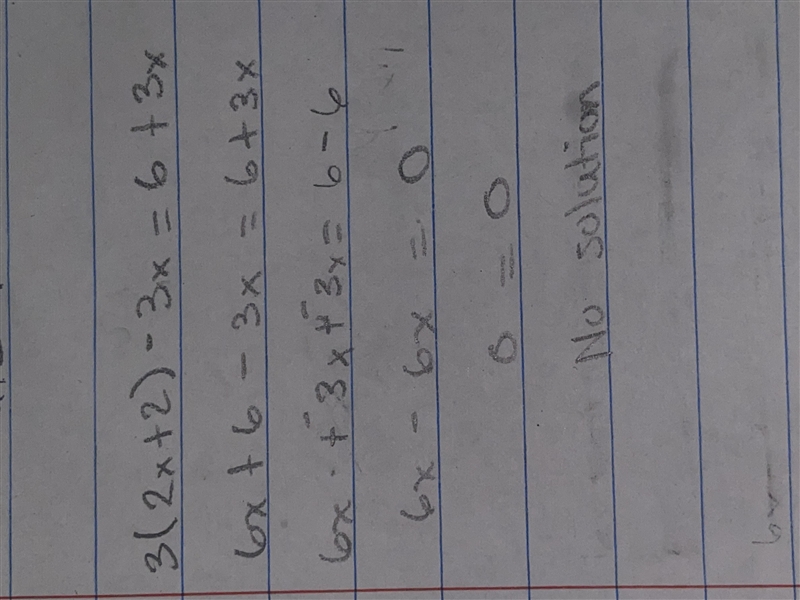 3(2x+2) - 3x = 6 + 3x
6x + 6 - 3x = 6 + 3x
6x + -3x + -3x = 6 - 6
6x - 6x = 0
0 = 0
No solution
6x